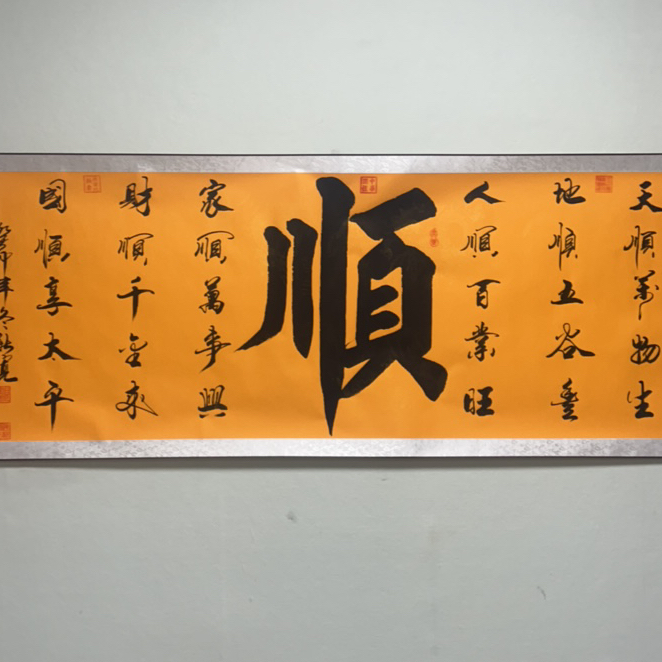 天順萬物生
地順五谷豐
人順百業旺
順
家順萬事興
財順千金來
國順享太平
癸卯年冬